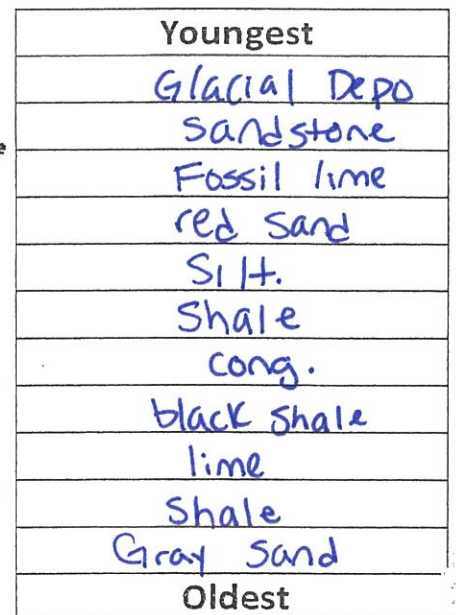 Youngest
Glacial Depo
Sandstone
Fossil lime
red sand
Silt.
Shale
cong.
black shale
lime
Shale
Gray Sand
Oldest